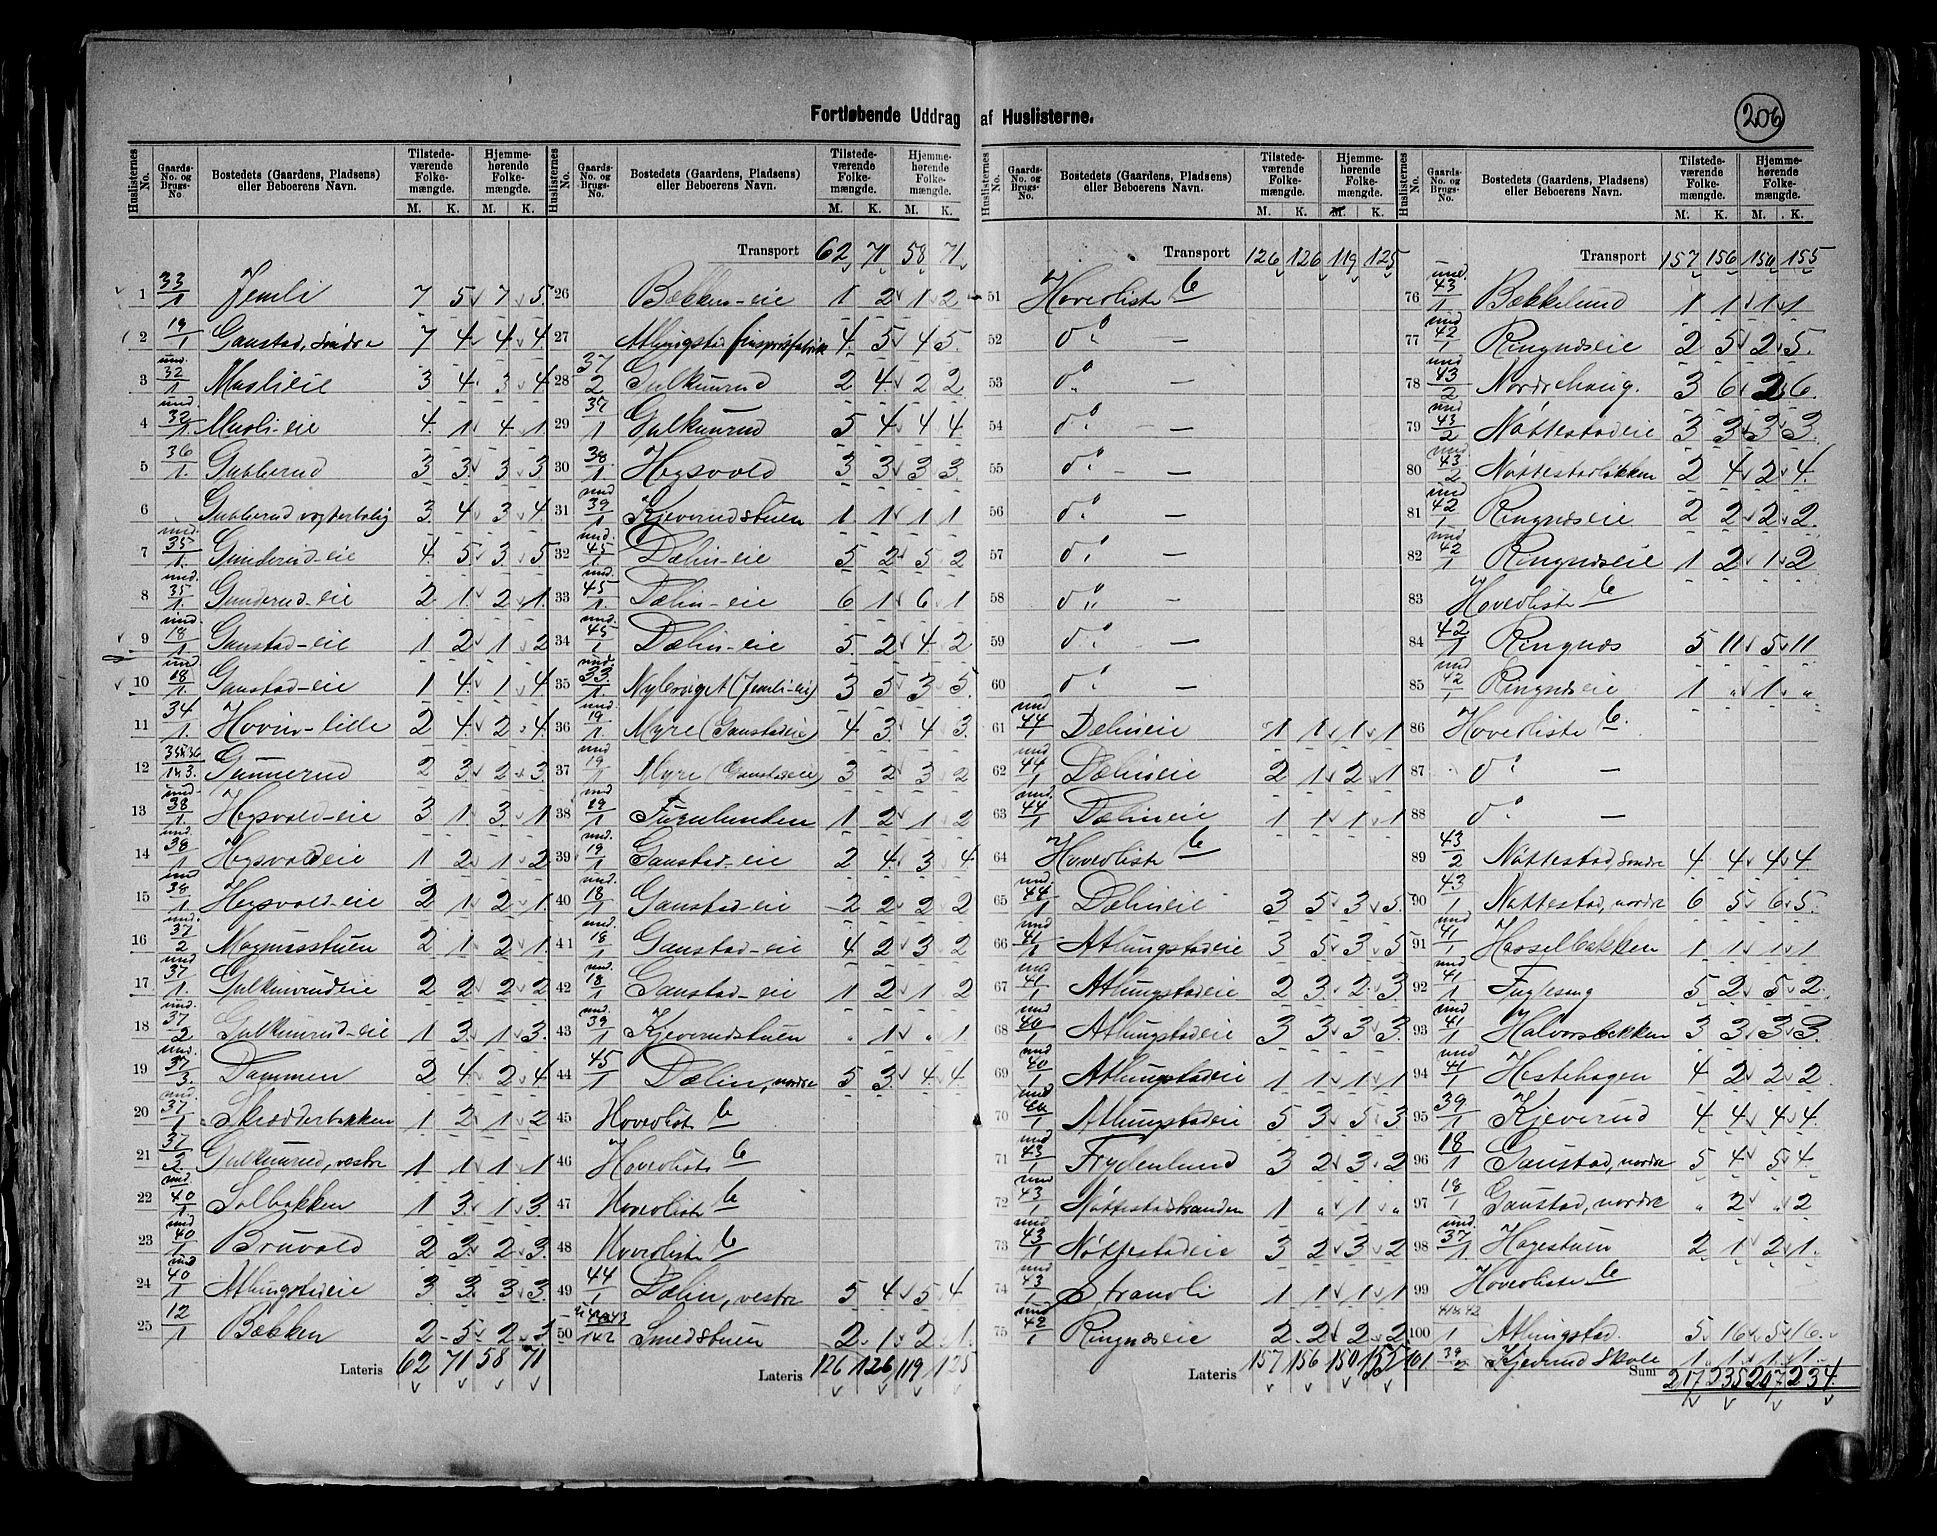 206
Fortløbende Uddrag af Huslisterne.
Huslisternes No. | Gaards-No. og Brugs-No. | Bostedets (Gaardens, Pladsens) eller Beboerens Navn. | Tilstedeværende Folkemængde. M. K. | Hjemmehørende Folkemængde. M. K.
1 33/1 Jemli 7 5 7 5
2 19/1 Ganstad, Søndre 7 4 4 4
3 und. 32/1 Muslieie 3 4 3 4
4 und 32/1 Musli-eie 4 1 4 1
5 36/1 Gubberud 3 3 3 3
6 Gubberud vogterbolig 3 4 3 4
7 und. 35/1 Gunderud-eie 4 5 3 5
8 und. 35/1 Gunderud-eie 2 1 2 1
9 und. 18/1 Ganstad-eie 1 2 1 2
10 und 18/1 Ganstad-eie 1 4 1 4
11 34/1 Hovin-lille 2 4 2 4
12 Gunnerud 2 3 2 3
13 und. 38/1 Hegsvold-eie 3 1 3 1
14 und. 38/1 Hegsvoldeie 1 2 1 2
15 und 38/1 Hegsvold-eie 2 1 2 1
16 und. 37/2 Magnusstuen 2 1 2 1
17 und 37/1 Gulkunrudeie 2 2 2 2
18 und. 37/2 Gulkunrud-eie 1 3 1 3
19 und. 37/3 Dammen 2 4 2 4
20 und. 37/1 Skrædderbakken 1 2 1 2
21 37/3 Gulkunrud, vestre 1 1 1 1
22 und 40/1 Solbakken 1 3 1 3
23 und 40/1 Bruvold 2 3 2 3
24 und 40/1 Atlungstadeie 3 3 3 3
25 12/1 Bækken 2 5 2 3
Lateris 62 71 58 71
Transport 62 71 58 71
26 Bækken-eie 1 2 1 2
27 Atlungstad finspritfabrik 4 5 4 5
28 37/2 Gulkunrud 2 4 2 2
29 37/1 Gulkunrud 5 4 4 4
30 38/1 Hegsvold 3 3 3 3
31 und 39/1 Kjeverudstuen 1 1 1 1
32 und. 45/1 Dælin-eie 5 2 5 2
33 und. 45/1 Dælin-eie 6 1 6 1
34 und. 45/1 Dælin-eie 5 2 4 2
35 und. 33/1 Nybrøget (Jemli-eie) 3 5 3 5
36 und. 19/1 Myre (Ganstadeie) 4 3 4 3
37 und 19/1 Myre (Ganstadeie) 3 2 3 2
38 und 19/1 Furulunden 1 2 1 2
39 und. 19/1 Ganstad-eie 2 4 3 4
40 und. 18/1 Ganstad-eie 2 2 2 2
41 und. 18/1 Ganstad-eie 4 2 3 2
42 und. 18/1 Ganstad-eie 1 2 1 2
43 und. 39/1 Kjeverudstuen " 1 " 1
44 45/1 Dælin, nordre 5 3 4 4
45 Hovedliste 6
46 Hovedliste 6
47 Hovedliste 6
48 Hovedliste 6
49 44/1 Dælin, vestre 5 4 5 4
50 Smedstuen 2 1 2 1
Lateris 126 126 119 125
Transport 126 126 119 125
51 Hovedliste 6
52 do. —
53 do. —
54 do. —
55 do. —
56 do. —
57 do. —
58 do. —
59 do. —
60 do. —
61 und 44/1 Dælineie 1 1 1 1
62 und 44/1 Dælineie 2 1 2 1
63 und. 44/1 Dælineie 1 1 1 1
64 Hovedliste 6
65 und. 44/1 Dælineie 3 5 3 5
66 und 41/1 Atlungstadeie 3 5 3 5
67 und 41/1 Atlungstadeie 2 3 2 3
68 und 40/1 Atlungstadeie 3 3 3 3
69 und 40/1 Atlungstadeie 1 1 1 1
70 und 40/1 Atlungstadeie 5 3 5 3
71 und 43/1 Frydenlund 3 2 3 2
72 und 43/1 Nøttestadstranden 1 " 1 "
73 und 43/1 Nøttestadeie 3 2 3 2
74 und 43/1 Strandli 1 1 1 1
75 und 42/1 Ringnæseie 2 2 2 2
Lateris 157 156 150 155
Transport 157 156 150 155
76 und. 43/1 Bækkelund 1 1 1 1
77 und 42/1 Ringnæseie 2 5 2 5
78 und 43/2 Nordre haug. 3 6 2 6
79 und 43/2 Nøttestadeie 3 3 3 3
80 und 43/2 Nøttestadbakken 2 4 2 4
81 und 42/1 Ringnæseie 2 2 2 2
82 und 42/1 Ringnæseie 1 2 1 2
83 Hovedliste 6
84 42/1 Ringnæs 5 11 5 11
85 und 42/1 Ringnæseie 1 " 1 "
86 Hovedliste 6.
87 do. —
88 do. —
89 43/2 Nøttestad, Søndre 4 4 4 4
90 43/1 Nøttestad, nordre 6 5 6 5
91 und 41/1 Hasselbakken 1 1 1 1
92 und 41/1 Fuglesang 5 2 5 2
93 und 41/1 Halvorsbakken 3 3 3 3
94 und 41/1 Hestehagen 4 2 2 2
95 39/1 Kjeverud 4 4 4 4
96 18/1 Ganstad, nordre 5 4 5 4
97 18/1 Ganstad, nordre " 2 " 2
98 und. 37/1 Hagestuen 2 1 2 1
99 Hovedliste 6
100 Atlungstad. 5 16 5 16
101 39/2 Kjeverud Skole 1 1 1 1
Sum 217 235 207 234